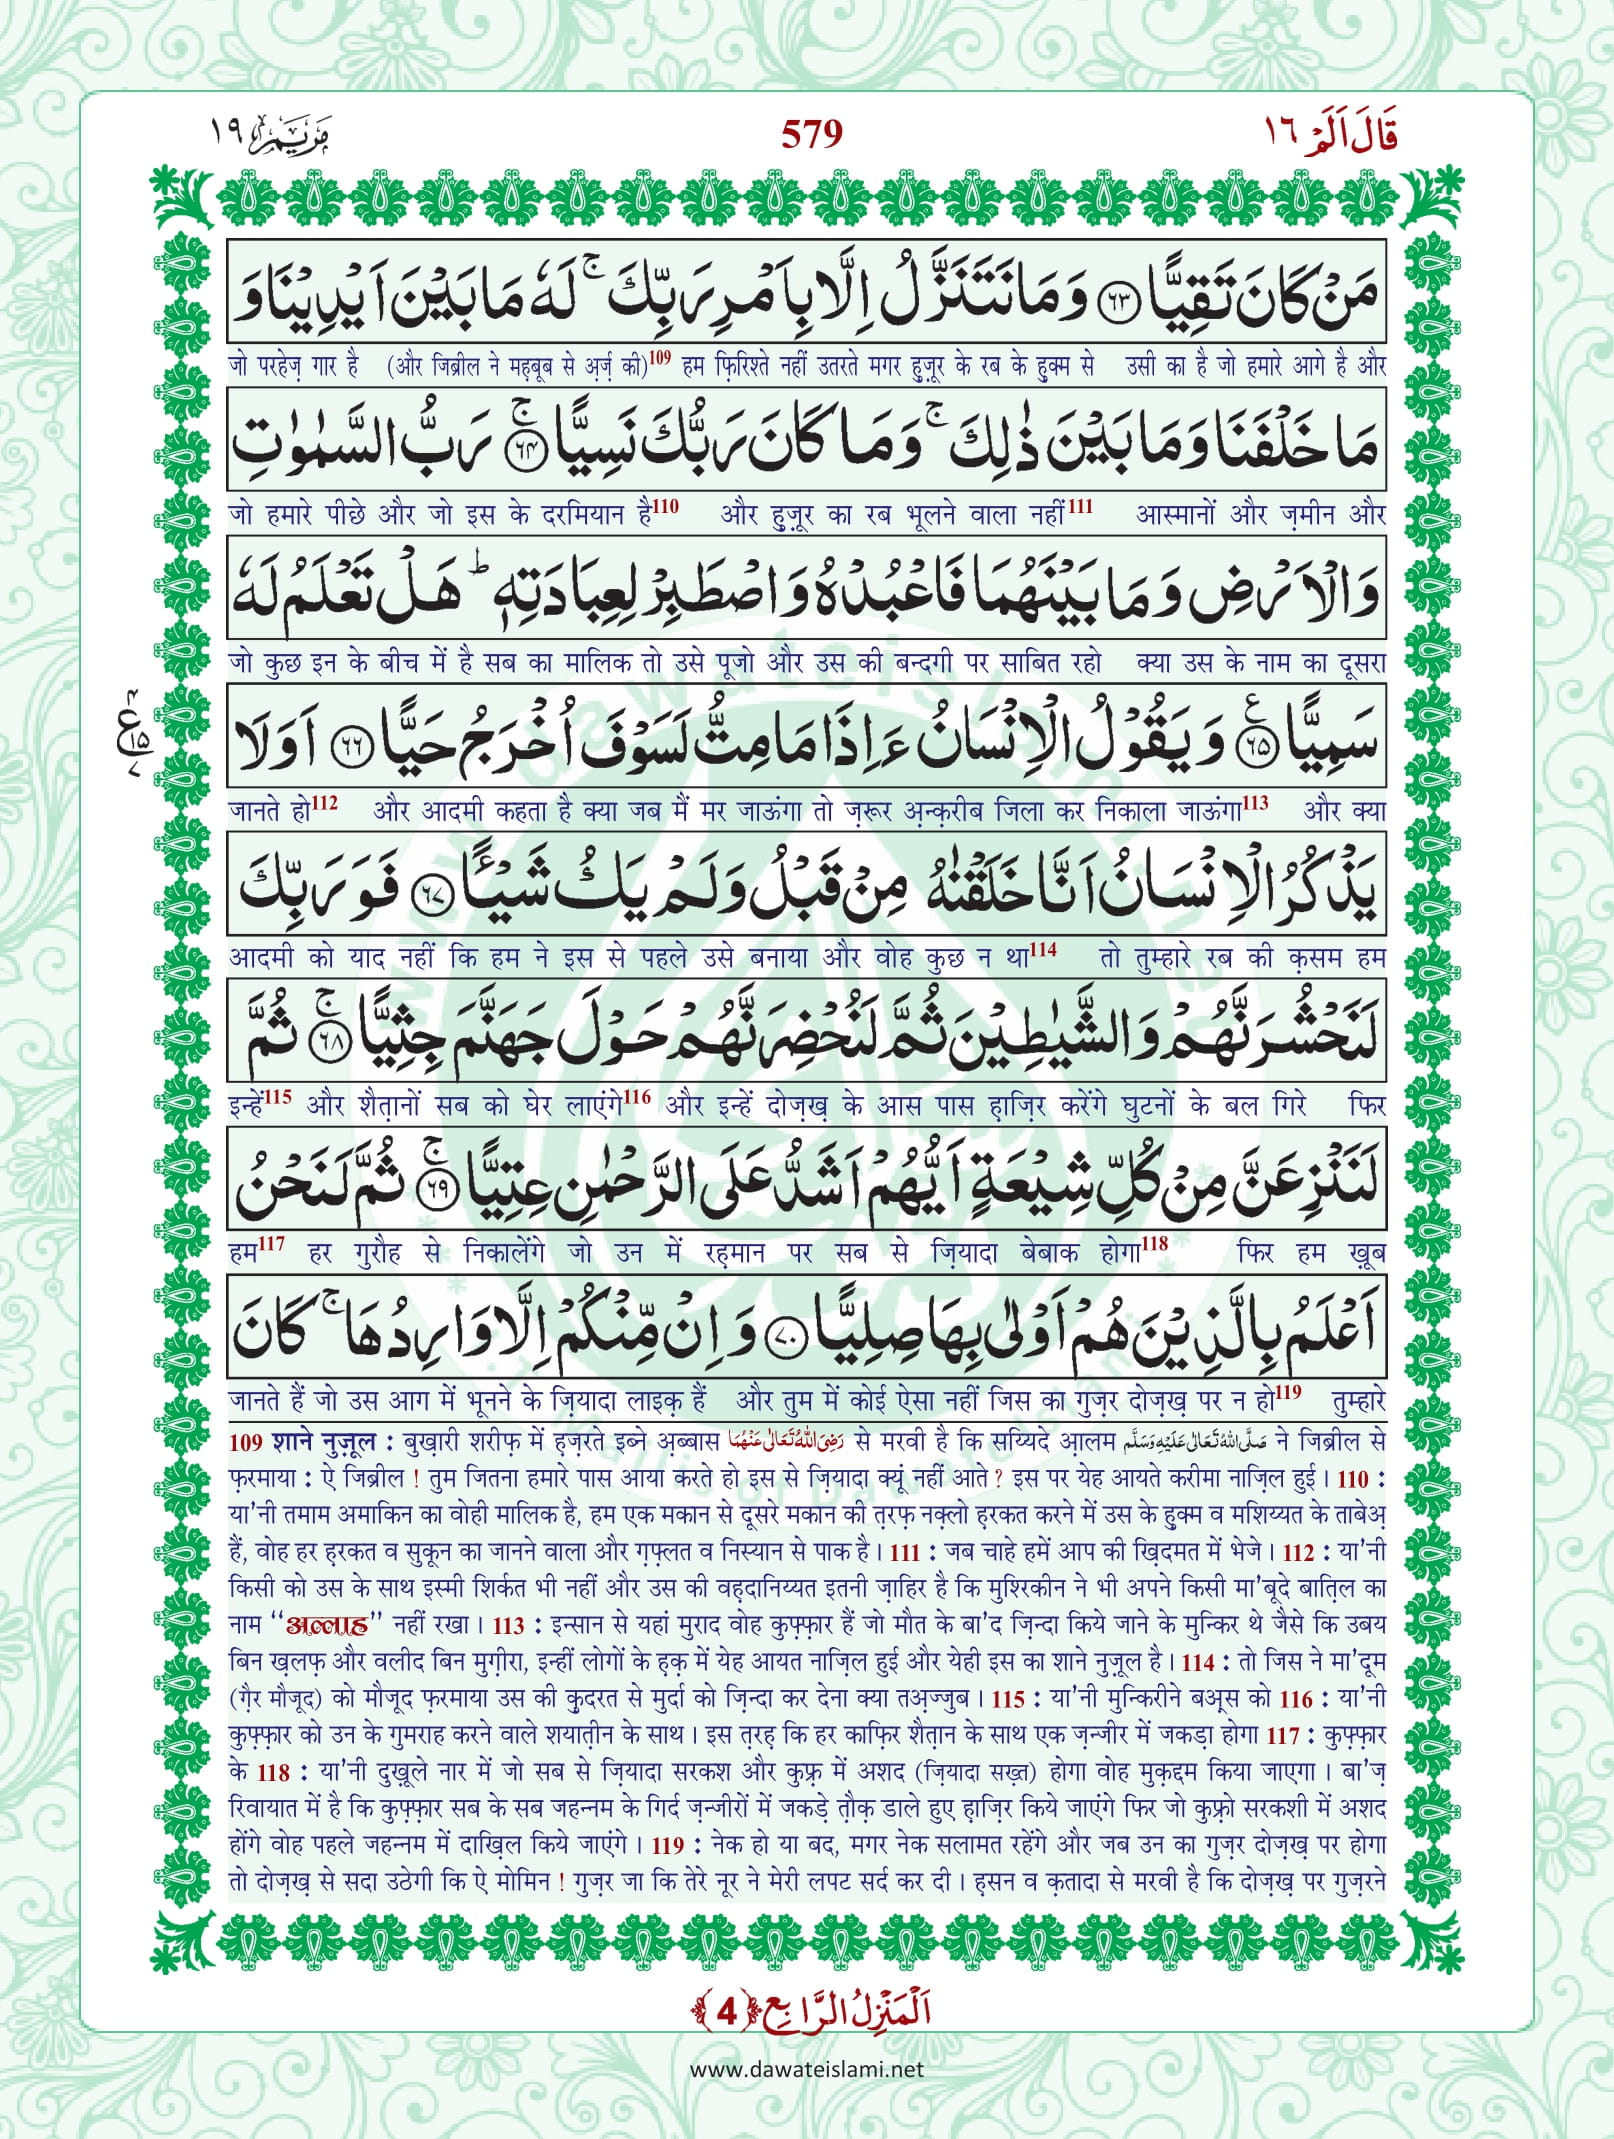 قَالَ اَلَمْ ١٦
579
مَرْيَم ١٩
مَنْ كَانَ تَقِيًّا ﴿۶۳﴾ وَمَا نَتَنَزَّلُ اِلَّا بِاَمْرِ رَبِّكَ ۚ لَهٗ مَا بَیْنَ اَیْدِیْنَا وَ
जो परहेज़ गार है (और जिब्रील ने मह़बूब से अ़र्ज़ की)109 हम फ़िरिश्ते नहीं उतरते मगर हु़ज़ूर के रब के हु़क्म से उसी का है जो हमारे आगे है और
مَا خَلْفَنَا وَمَا بَیْنَ ذٰلِكَ ۚ وَمَا كَانَ رَبُّكَ نَسِیًّا ﴿۶۴﴾ۚ رَبُّ السَّمٰوٰتِ
जो हमारे पीछे और जो इस के दरमियान है110 और हु़ज़ूर का रब भूलने वाला नहीं111 आस्मानों और ज़मीन और
وَالْاَرْضِ وَمَا بَیْنَهُمَا فَاعْبُدْهُ وَاصْطَبِرْ لِعِبَادَتِهٖ ؕ هَلْ تَعْلَمُ لَهٗ
जो कुछ इन के बीच में है सब का मालिक तो उसे पूजो और उस की बन्दगी पर साबित रहो क्या उस के नाम का दूसरा
سَمِیًّا ﴿۶۵﴾ وَیَقُوْلُ الْاِنْسَانُ ءَاِذَا مَا مِتُّ لَسَوْفَ اُخْرَجُ حَیًّا ﴿۶۶﴾ اَوَلَا
ع ۱۵
जानते हो112 और आदमी कहता है क्या जब मैं मर जाऊंगा तो ज़रूर अ़न्क़रीब जिला कर निकाला जाऊंगा113 और क्या
یَذْكُرُ الْاِنْسَانُ اَنَّا خَلَقْنٰهُ مِنْ قَبْلُ وَلَمْ یَكُ شَیْـًٔا ﴿۶۷﴾ فَوَرَبِّكَ
आदमी को याद नहीं कि हम ने इस से पहले उसे बनाया और वोह कुछ न था114 तो तुम्हारे रब की क़सम हम
لَنَحْشُرَنَّهُمْ وَالشَّیٰطِیْنَ ثُمَّ لَنُحْضِرَنَّهُمْ حَوْلَ جَهَنَّمَ جِثِیًّا ﴿۶۸﴾ۚ ثُمَّ
इन्हें115 और शैत़ानों सब को घेर लाएंगे116 और इन्हें दोज़ख़ के आस पास ह़ाज़िर करेंगे घुटनों के बल गिरे फिर
لَنَنْزِعَنَّ مِنْ كُلِّ شِیْعَةٍ اَیُّهُمْ اَشَدُّ عَلَی الرَّحْمٰنِ عِتِیًّا ﴿۶۹﴾ۚ ثُمَّ لَنَحْنُ
हम117 हर गुरौह से निकालेंगे जो उन में रह़मान पर सब से ज़ियादा बेबाक होगा118 फिर हम ख़ूब
اَعْلَمُ بِالَّذِیْنَ هُمْ اَوْلٰی بِهَا صِلِیًّا ﴿۷۰﴾ وَاِنْ مِّنْكُمْ اِلَّا وَارِدُهَا ۚ كَانَ
जानते हैं जो उस आग में भूनने के ज़ियादा लाइक़ हैं और तुम में कोई ऐसा नहीं जिस का गुज़र दोज़ख़ पर न हो119 तुम्हारे
109 शाने नुज़ूल : बुख़ारी शरीफ़ में ह़ज़रते इब्ने अ़ब्बास رَضِیَ اللهُ تَعَالٰی عَنْهُمَا से मरवी है कि सय्यिदे आ़लम صَلَّی اللهُ تَعَالٰی عَلَیْهِ وَسَلَّم ने जिब्रील से
फ़रमाया : ऐ जिब्रील ! तुम जितना हमारे पास आया करते हो इस से ज़ियादा क्यूं नहीं आते ? इस पर येह आयते करीमा नाज़िल हुई । 110 :
या'नी तमाम अमाकिन का वोही मालिक है, हम एक मकान से दूसरे मकान की त़रफ़ नक़्लो ह़रकत करने में उस के हु़क्म व मशिय्यत के ताबेअ़
हैं, वोह हर ह़रकत व सुकून का जानने वाला और ग़फ़्लत व निस्यान से पाक है । 111 : जब चाहे हमें आप की ख़िदमत में भेजे । 112 : या'नी
किसी को उस के साथ इस्मी शिर्कत भी नहीं और उस की वह़दानिय्यत इतनी ज़ाहिर है कि मुश्रिकीन ने भी अपने किसी मा'बूदे बात़िल का
नाम ‘‘अल्लाह’’ नहीं रखा । 113 : इन्सान से यहां मुराद वोह कुफ़्फ़ार हैं जो मौत के बा'द ज़िन्दा किये जाने के मुन्किर थे जैसे कि उबय
बिन ख़लफ़ और वलीद बिन मुग़ीरा, इन्हीं लोगों के ह़क़ में येह आयत नाज़िल हुई और येही इस का शाने नुज़ूल है । 114 : तो जिस ने मा'दूम
(ग़ैर मौजूद) को मौजूद फ़रमाया उस की क़ुदरत से मुर्दा को ज़िन्दा कर देना क्या तअ़ज्जुब । 115 : या'नी मुन्किरीने बअ़्स को 116 : या'नी
कुफ़्फ़ार को उन के गुमराह करने वाले शयात़ीन के साथ । इस त़रह़ कि हर काफ़िर शैत़ान के साथ एक ज़न्जीर में जकड़ा होगा 117 : कुफ़्फ़ार
के 118 : या'नी दुख़ूले नार में जो सब से ज़ियादा सरकश और कुफ़्र में अशद (ज़ियादा सख़्त) होगा वोह मुक़द्दम किया जाएगा । बा'ज़
रिवायात में है कि कुफ़्फ़ार सब के सब जहन्नम के गिर्द ज़न्जीरों में जकड़े त़ौक़ डाले हुए ह़ाज़िर किये जाएंगे फिर जो कुफ़्रो सरकशी में अशद
होंगे वोह पहले जहन्नम में दाख़िल किये जाएंगे । 119 : नेक हो या बद, मगर नेक सलामत रहेंगे और जब उन का गुज़र दोज़ख़ पर होगा
तो दोज़ख़ से सदा उठेगी कि ऐ मोमिन ! गुज़र जा कि तेरे नूर ने मेरी लपट सर्द कर दी । ह़सन व क़तादा से मरवी है कि दोज़ख़ पर गुज़रने
اَلْمَنْزِلُ الرَّابِع ﴿4﴾
www.dawateislami.net